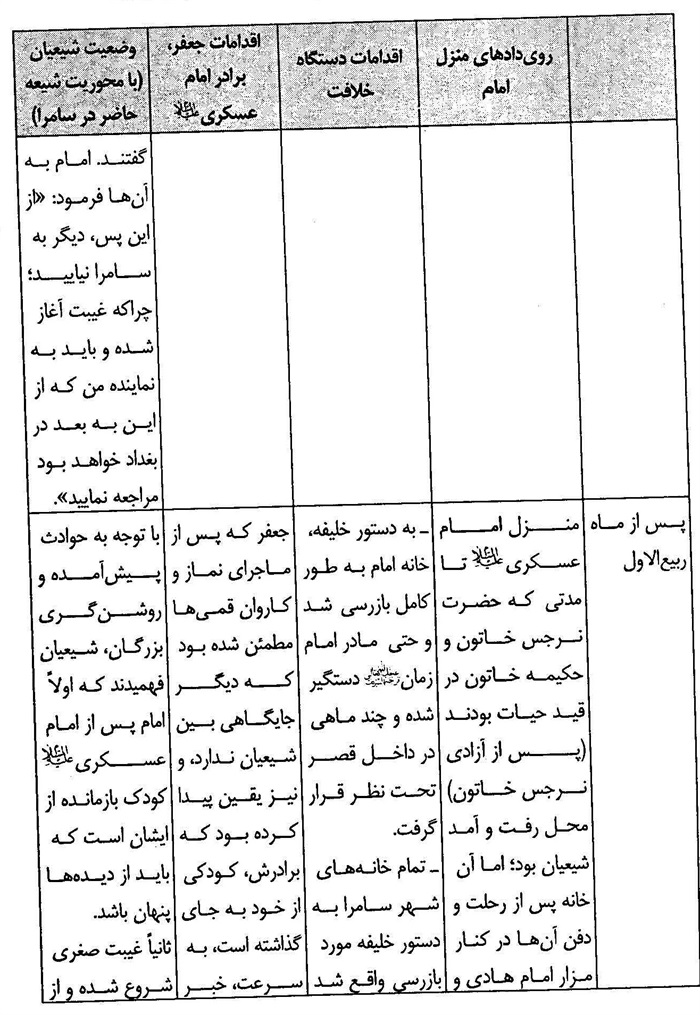 روی‌دادهای منزل
امام
اقدامات دستگاه
خلافت
اقدامات جعفر،
برادر امام
عسکری علیه‌السلام
وضعیت شیعیان
(با محوریت شیعه
حاضر در سامرا)
گفتند. امام به
آن‌ها فرمود: «از
این پس، دیگر به
سامرا نیایید؛
چراکه غیبت آغاز
شده و باید به
نماینده من که از
این به بعد در
بغداد خواهد بود
مراجعه نمایید».
پس از ماه
ربیع‌الاول
منزل امام
عسکری علیه‌السلام تا
مدتی که حضرت
نرجس خاتون و
حکیمه خاتون در
قید حیات بودند
(پس از آزادی
نرجس خاتون)
محل رفت و آمد
شیعیان بود؛ اما آن
خانه پس از رحلت و
دفن آن‌ها در کنار
مزار امام هادی و
ـ به دستور خلیفه،
خانه امام به طور
کامل بازرسی شد
و حتی مادر امام
زمان دستگیر
شده و چند ماهی
در داخل قصر
تحت نظر قرار
گرفت.
ـ تمام خانه‌های
شهر سامرا به
دستور خلیفه مورد
بازرسی واقع شد
جعفر که پس از
ماجرای نماز و
کاروان قمی‌ها
مطمئن شده بود
که دیگر
جایگاهی بین
شیعیان ندارد، و
نیز یقین پیدا
کرده بود که
برادرش، کودکی
از خود به جای
گذاشته است، به
سرعت، خبر
با توجه به حوادث
پیش‌آمده و
روشن‌گری
بزرگان، شیعیان
فهمیدند که اولاً
امام پس از امام
عسکری علیه‌السلام
کودک بازمانده از
ایشان است که
باید از دیده‌ها
پنهان باشد.
ثانیاً غیبت صغری
شروع شده و از